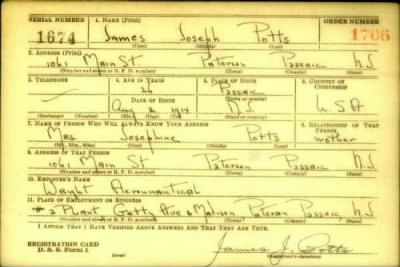 SERIAL NUMBER 1. NAME (Print) ORDER NUMBER
1674 James Joseph Potts 1706
(First) (Middle) (Last)
2. ADDRESS (Print)
1061 Main St Paterson Passaic N.J
(Number and street or R. F. D. number) (Town) (County) (State)
3. TELEPHONE 4. AGE IN YEARS 5. PLACE OF BIRTH 6. COUNTRY OF CITIZENSHIP
26 Passaic
DATE OF BIRTH (Town or county)
Aug 2 1914 N.J USA
(Mo.) (Day) (Yr.) (State or country)
7. NAME OF PERSON WHO WILL ALWAYS KNOW YOUR ADDRESS 8. RELATIONSHIP OF THAT PERSON
Mrs Josephine Potts mother
(Mr., Mrs., Miss) (First) (Middle) (Last)
9. ADDRESS OF THAT PERSON
1061 Main St Paterson Passaic N.J
(Number and street or R. F. D. number) (Town) (County) (State)
10. EMPLOYER'S NAME
Wright Aeronautical
11. PLACE OF EMPLOYMENT OR BUSINESS
#2 Plant Getty Ave & Madison Paterson Passaic N.J
(Number and street or R. F. D. number) (Town) (County) (State)
I AFFIRM THAT I HAVE VERIFIED ABOVE ANSWERS AND THAT THEY ARE TRUE.
REGISTRATION CARD
D. S. S. Form 1 James J. Potts
(Registrant's signature)